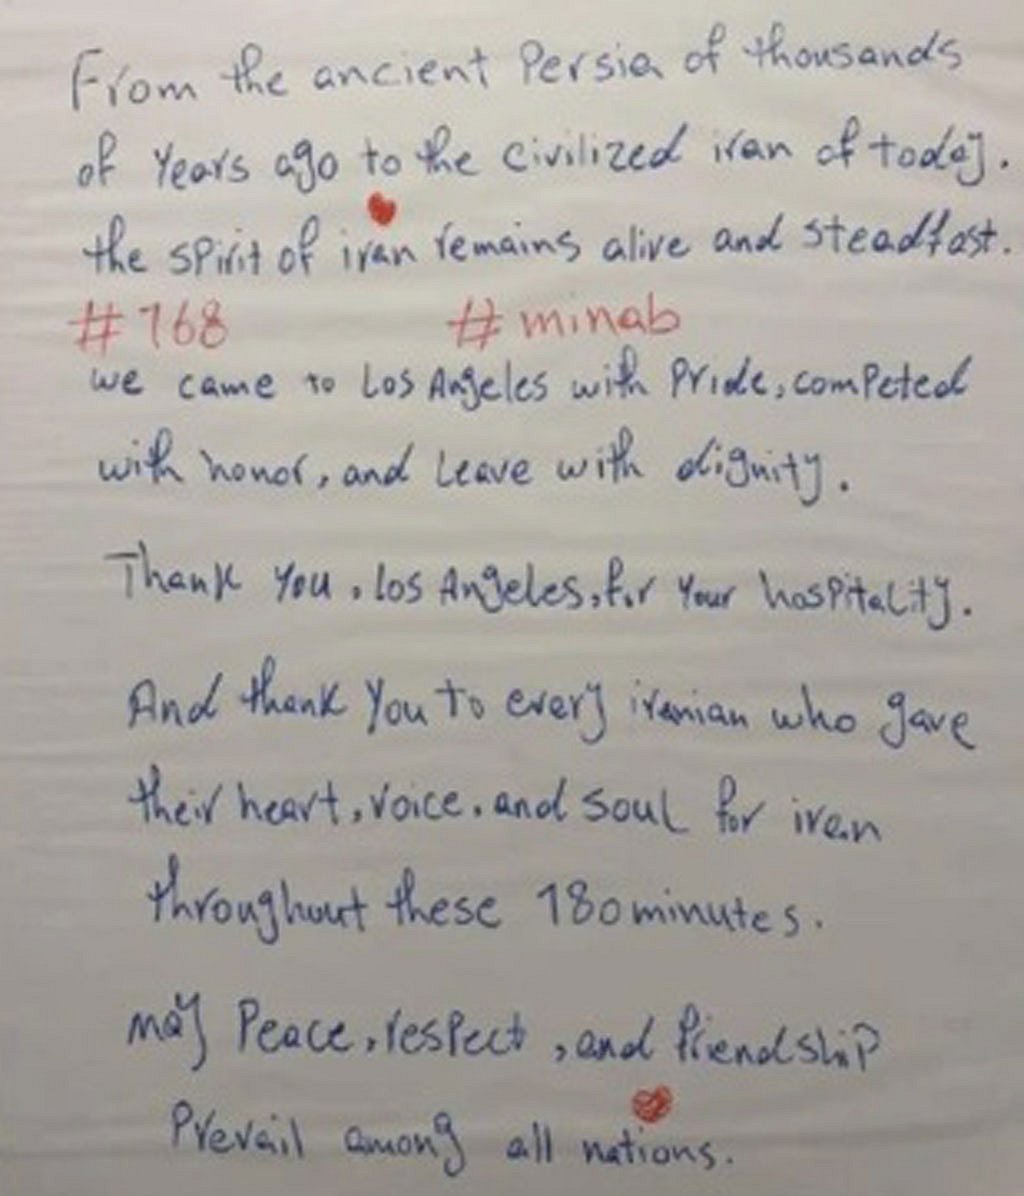 From the ancient Persia of thousands
of years ago to the civilized iran of today.
the spirit of iran remains alive and steadfast.
#168 #minab
we came to Los Angeles with Pride, competed
with honor, and Leave with dignity.
Thank you, los Angeles, for your hospitality.
And thank you to every iranian who gave
their heart, voice, and soul for iran
throughout these 180 minutes.
may Peace, respect, and friendship
Prevail among all nations.